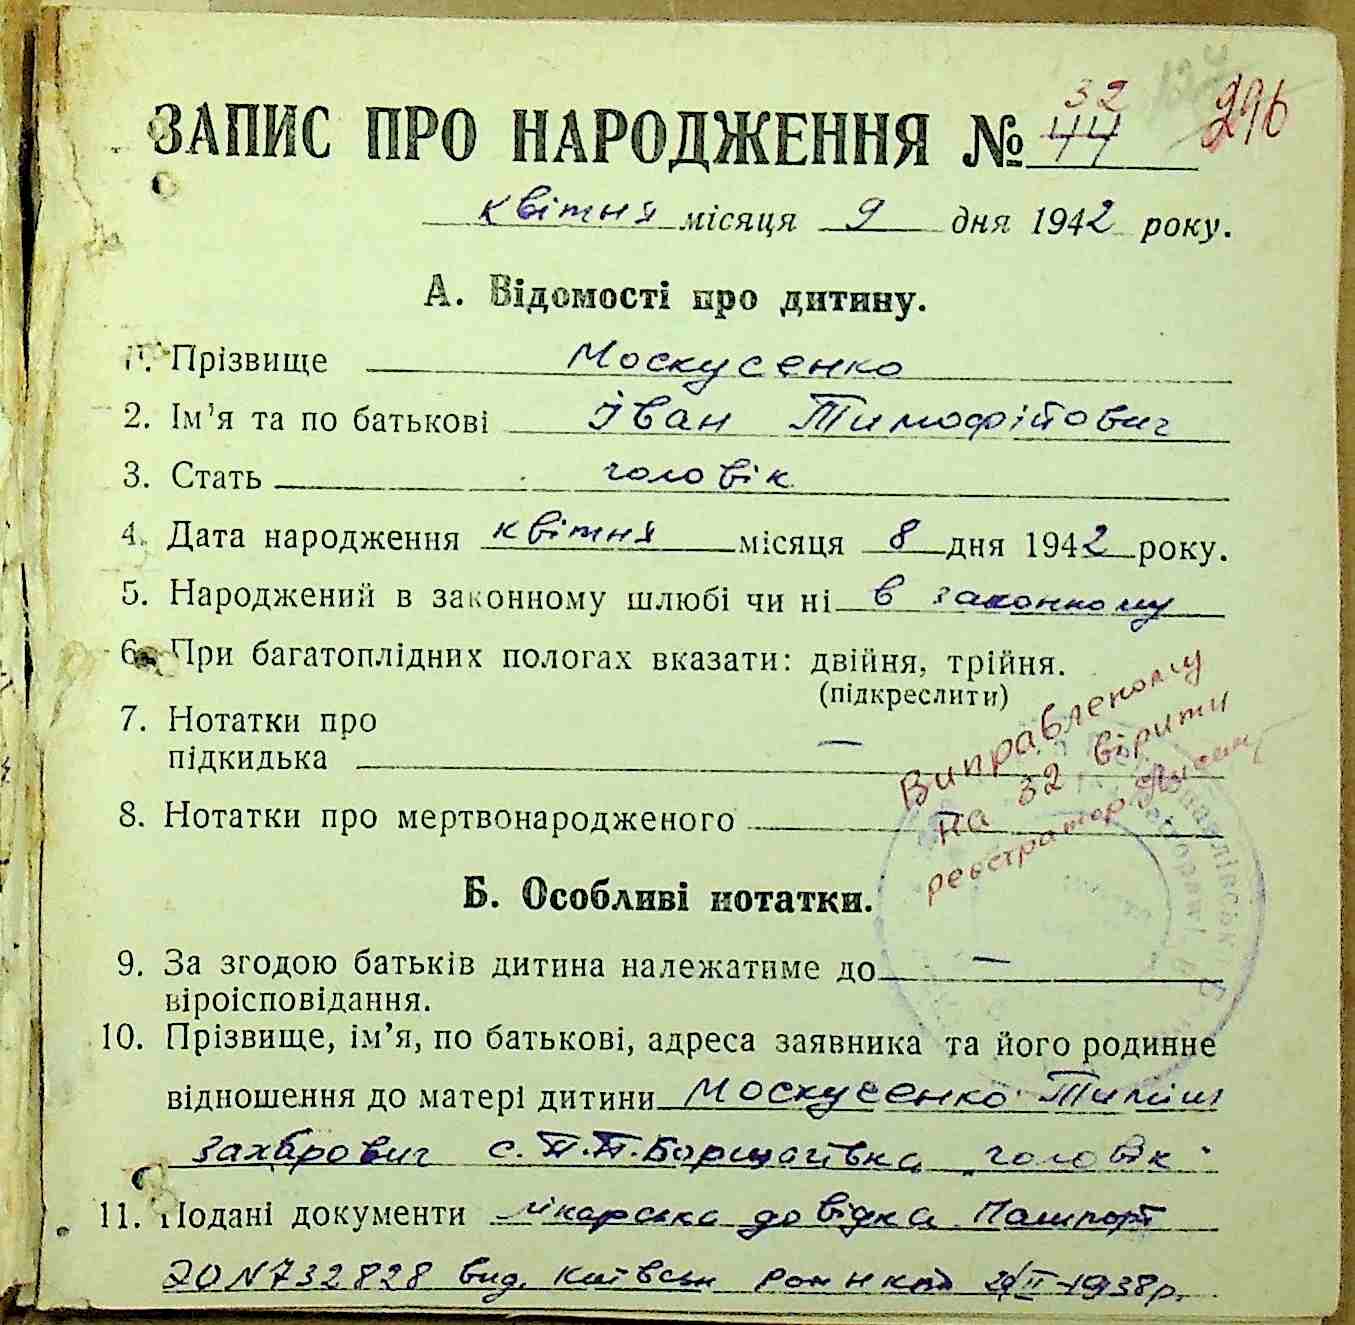 124 296
32
ЗАПИС ПРО НАРОДЖЕННЯ № 44
квітня місяця 9 дня 1942 року.
А. Відомості про дитину.
1. Прізвище Москусенко
2. Ім’я та по батькові Іван Тимофійович
3. Стать чоловік
4. Дата народження квітня місяця 8 дня 1942 року.
5. Народжений в законному шлюбі чи ні в законному
6. При багатоплідних пологах вказати: двійня, трійня.
(підкреслити)
7. Нотатки про
підкидька —
8. Нотатки про мертвонародженого —
Виправленому
на 32 вірити
реєстратор
Б. Особливі нотатки.
9. За згодою батьків дитина належатиме до —
віроісповідання.
10. Прізвище, ім’я, по батькові, адреса заявника та його родинне
відношення до матері дитини Москусенко Тиміш
Захарович с. П.П.Борщагівка чоловік
11. Подані документи лікарська довідка Пашпорт
N732828 вид. Київськ 1938р.